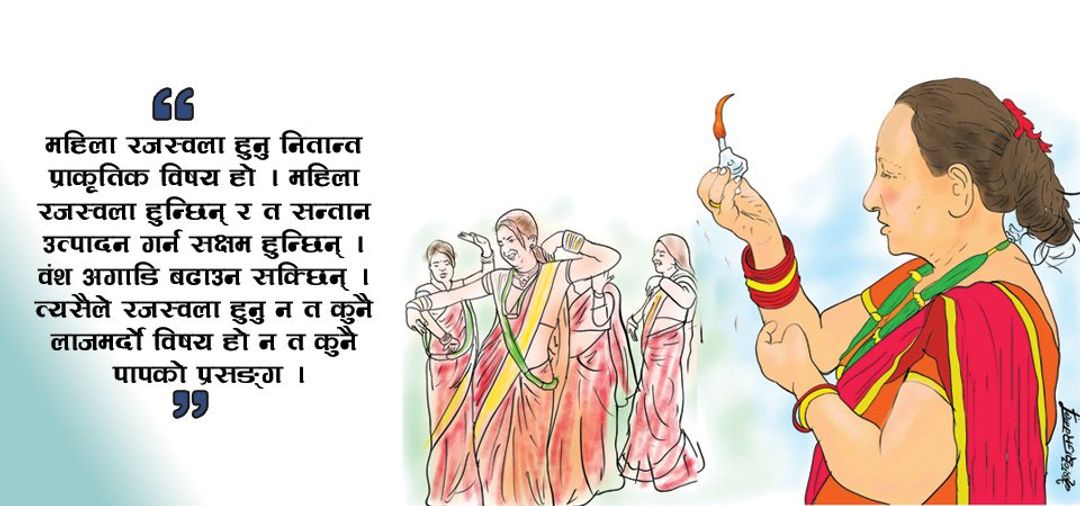 “
महिला रजस्वला हुनु नितान्त
प्राकृतिक विषय हो । महिला
रजस्वला हुन्छिन् र त सन्तान
उत्पादन गर्न सक्षम हुन्छिन् ।
वंश अगाडि बढाउन सक्छिन् ।
त्यसैले रजस्वला हुनु न त कुनै
लाजमर्दो विषय हो न त कुनै
पापको प्रसङ्ग ।
”